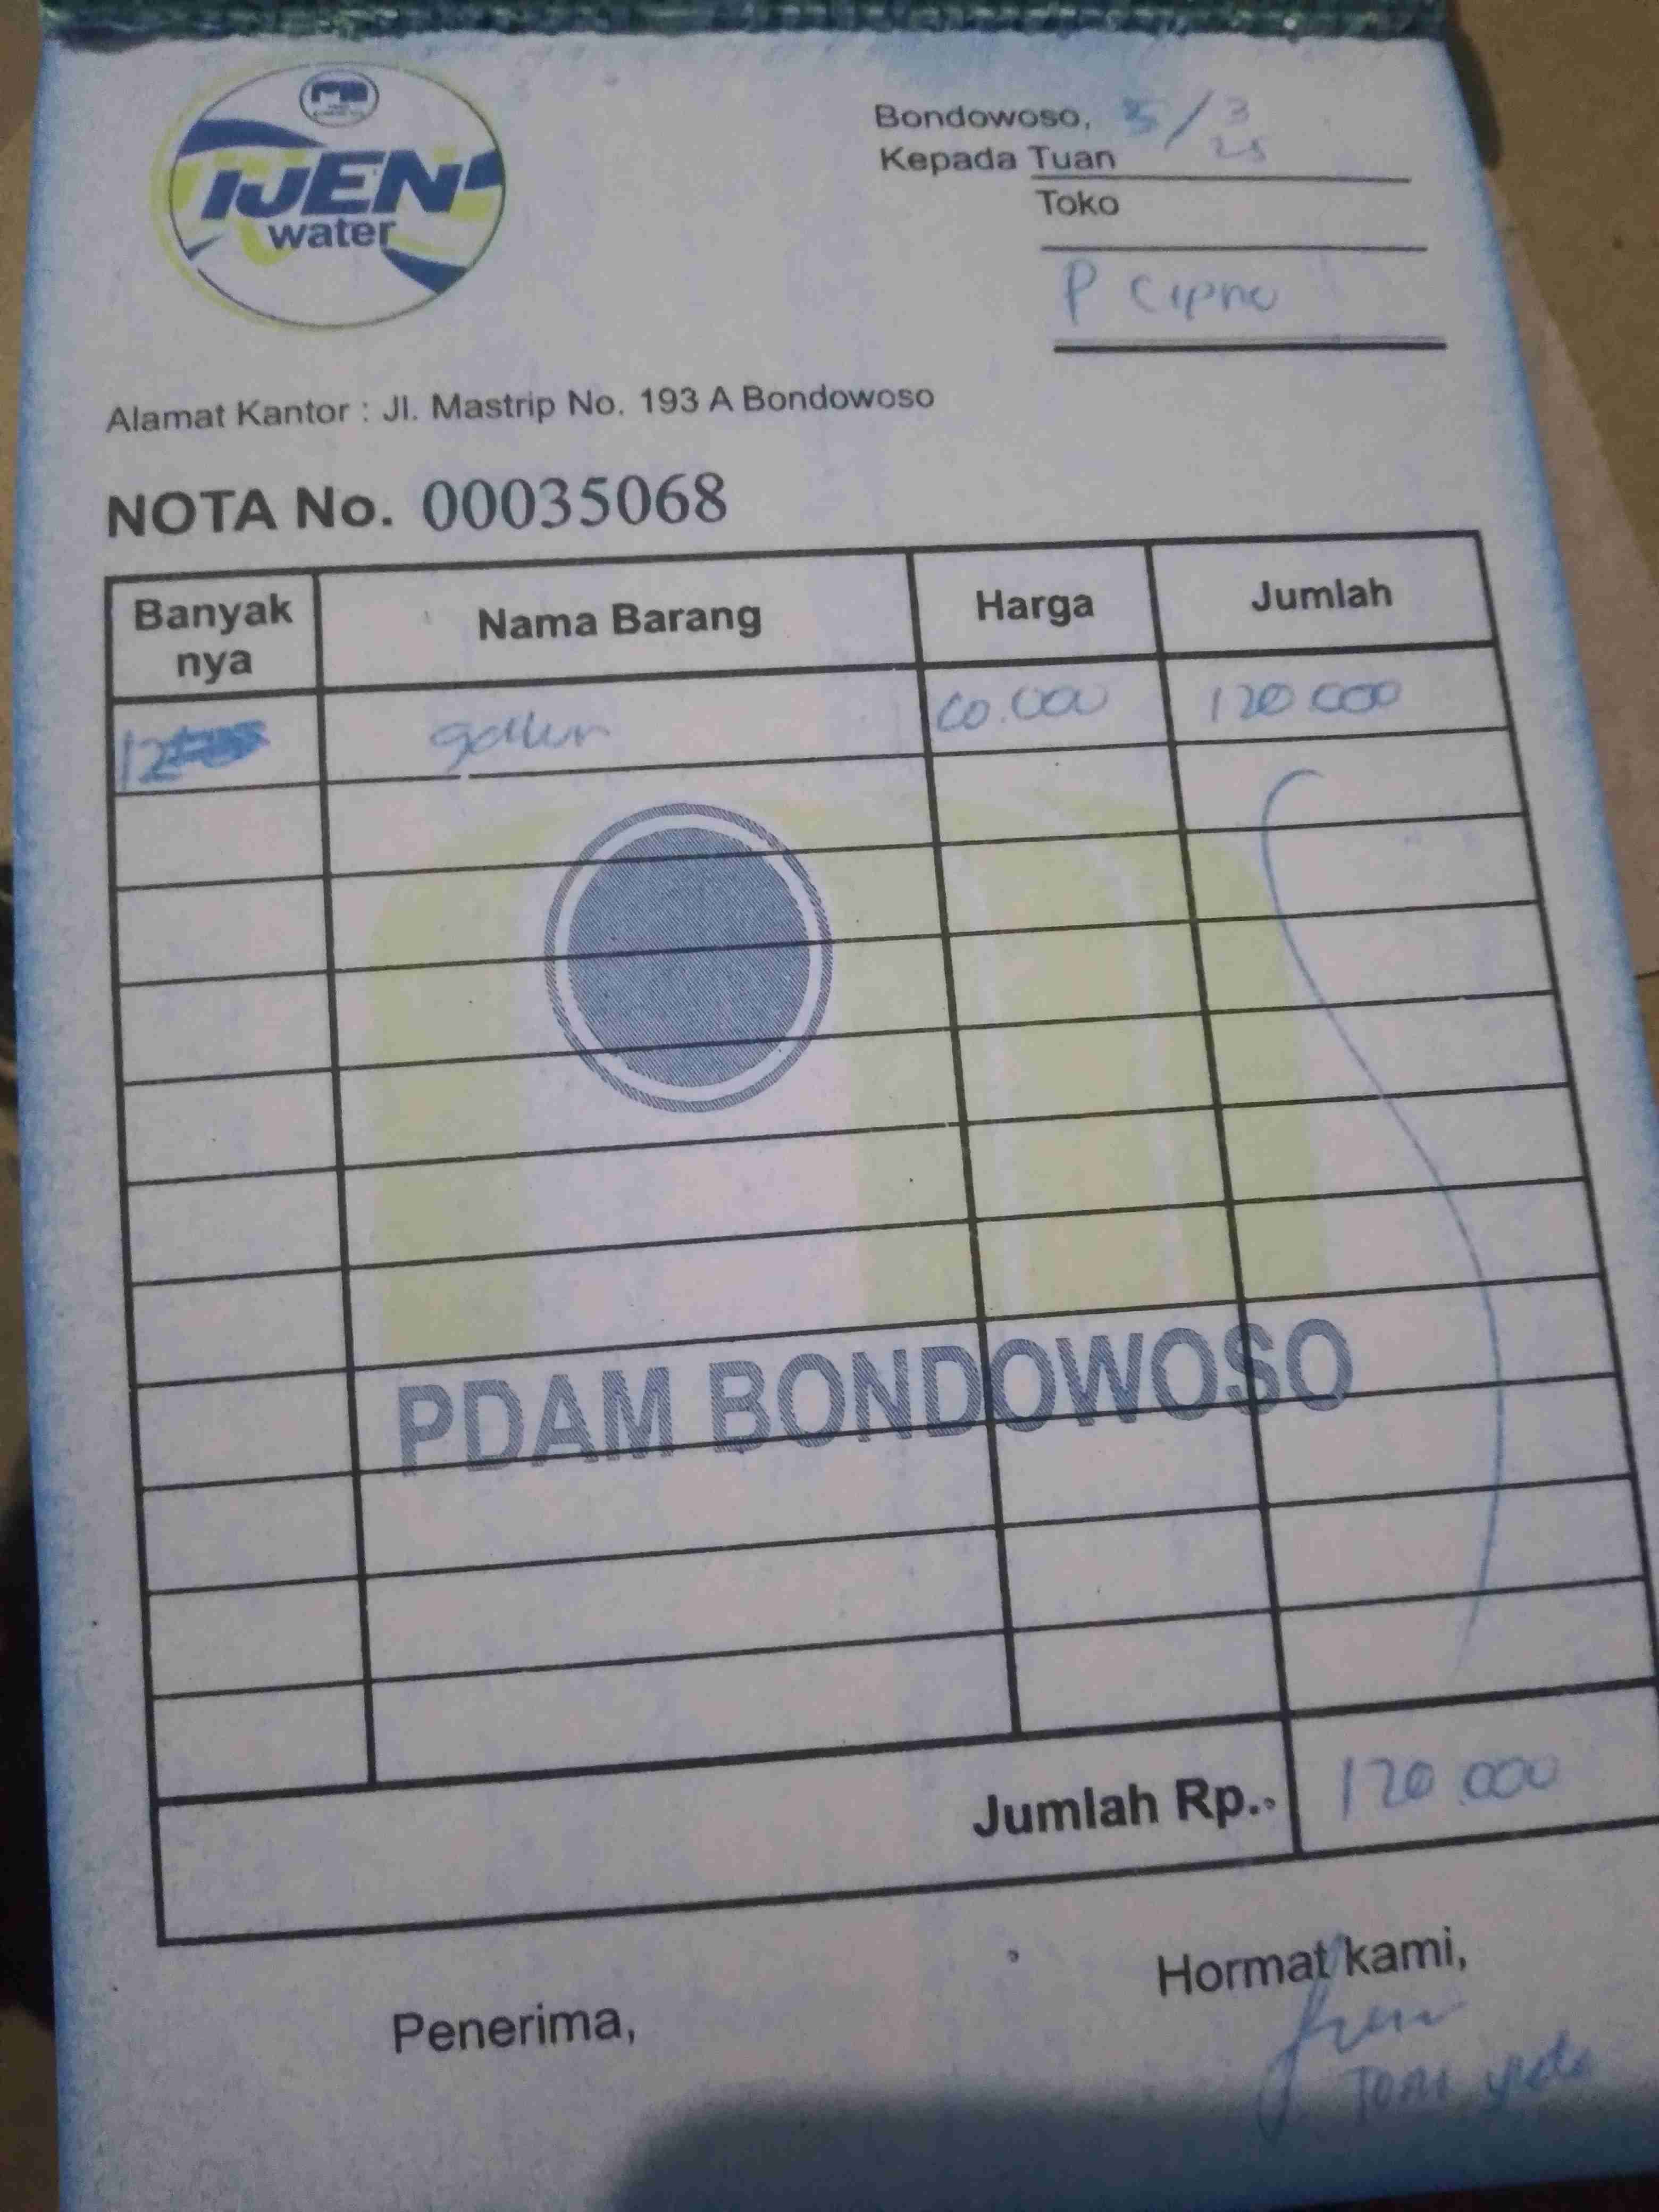 IJEN
water
Bondowoso, 5/3
25
Kepada Tuan
Toko
P Cipno
Alamat Kantor : Jl. Mastrip No. 193 A Bondowoso
NOTA No. 00035068
Banyak nya Nama Barang Harga Jumlah
12 gallon 10.000 120 000
PDAM BONDOWOSO
Jumlah Rp. 120.000
Penerima,
Hormat kami,